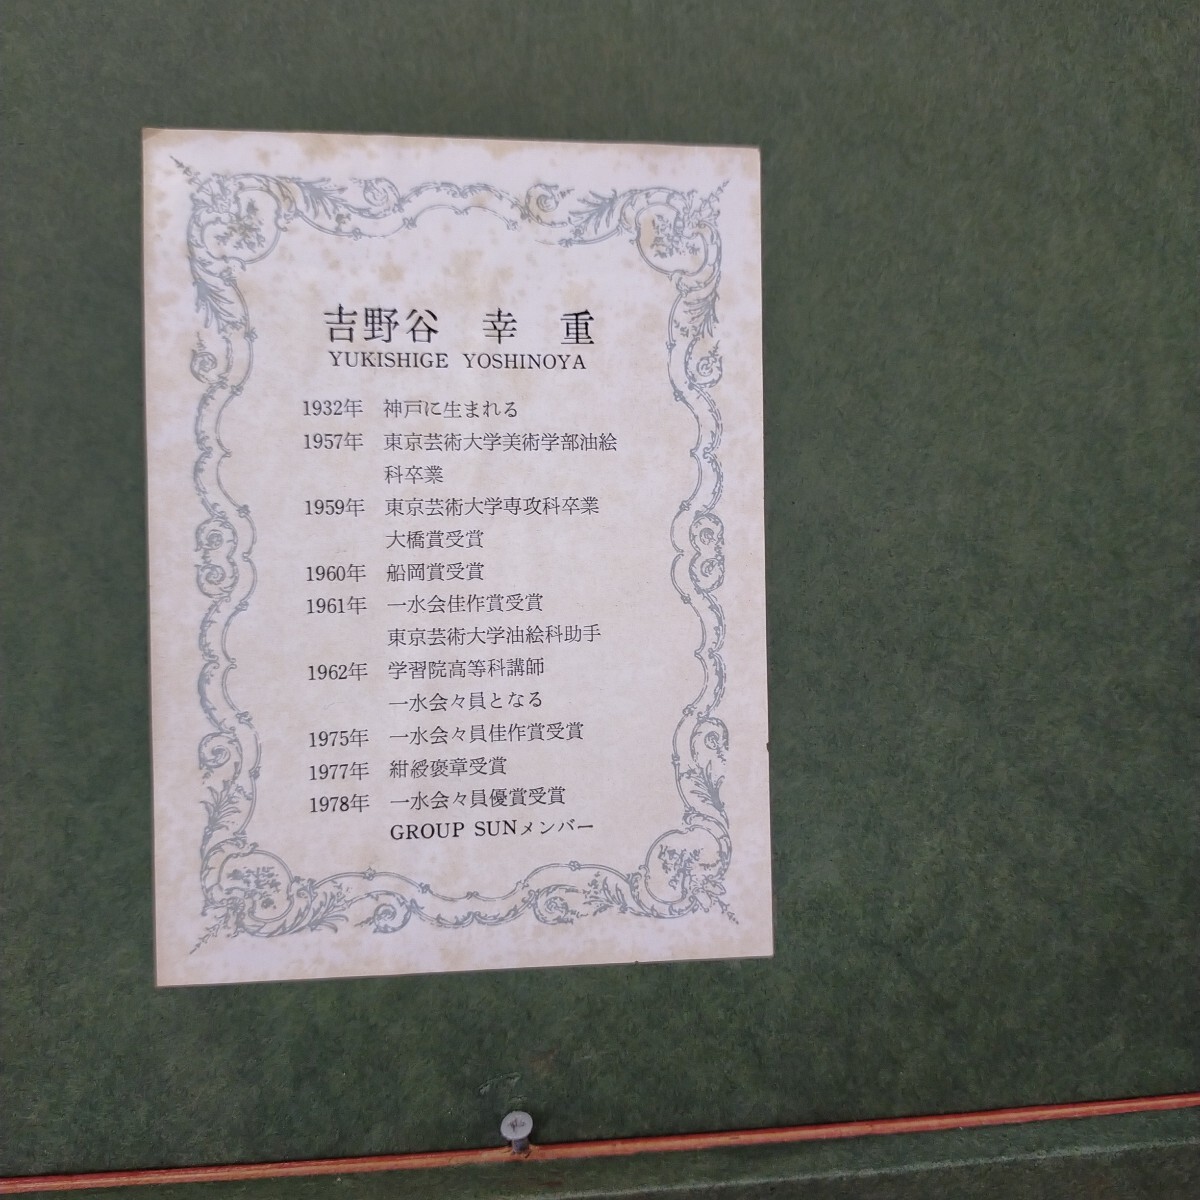 吉野谷 幸 重
YUKISHIGE YOSHINOYA
1932年 神戸に生まれる
1957年 東京芸術大学美術学部油絵
科卒業
1959年 東京芸術大学専攻科卒業
大橋賞受賞
1960年 船岡賞受賞
1961年 一水会佳作賞受賞
東京芸術大学油絵科助手
1962年 学習院高等科講師
一水会々員となる
1975年 一水会々員佳作賞受賞
1977年 紺綬褒章受賞
1978年 一水会々員優賞受賞
GROUP SUNメンバー